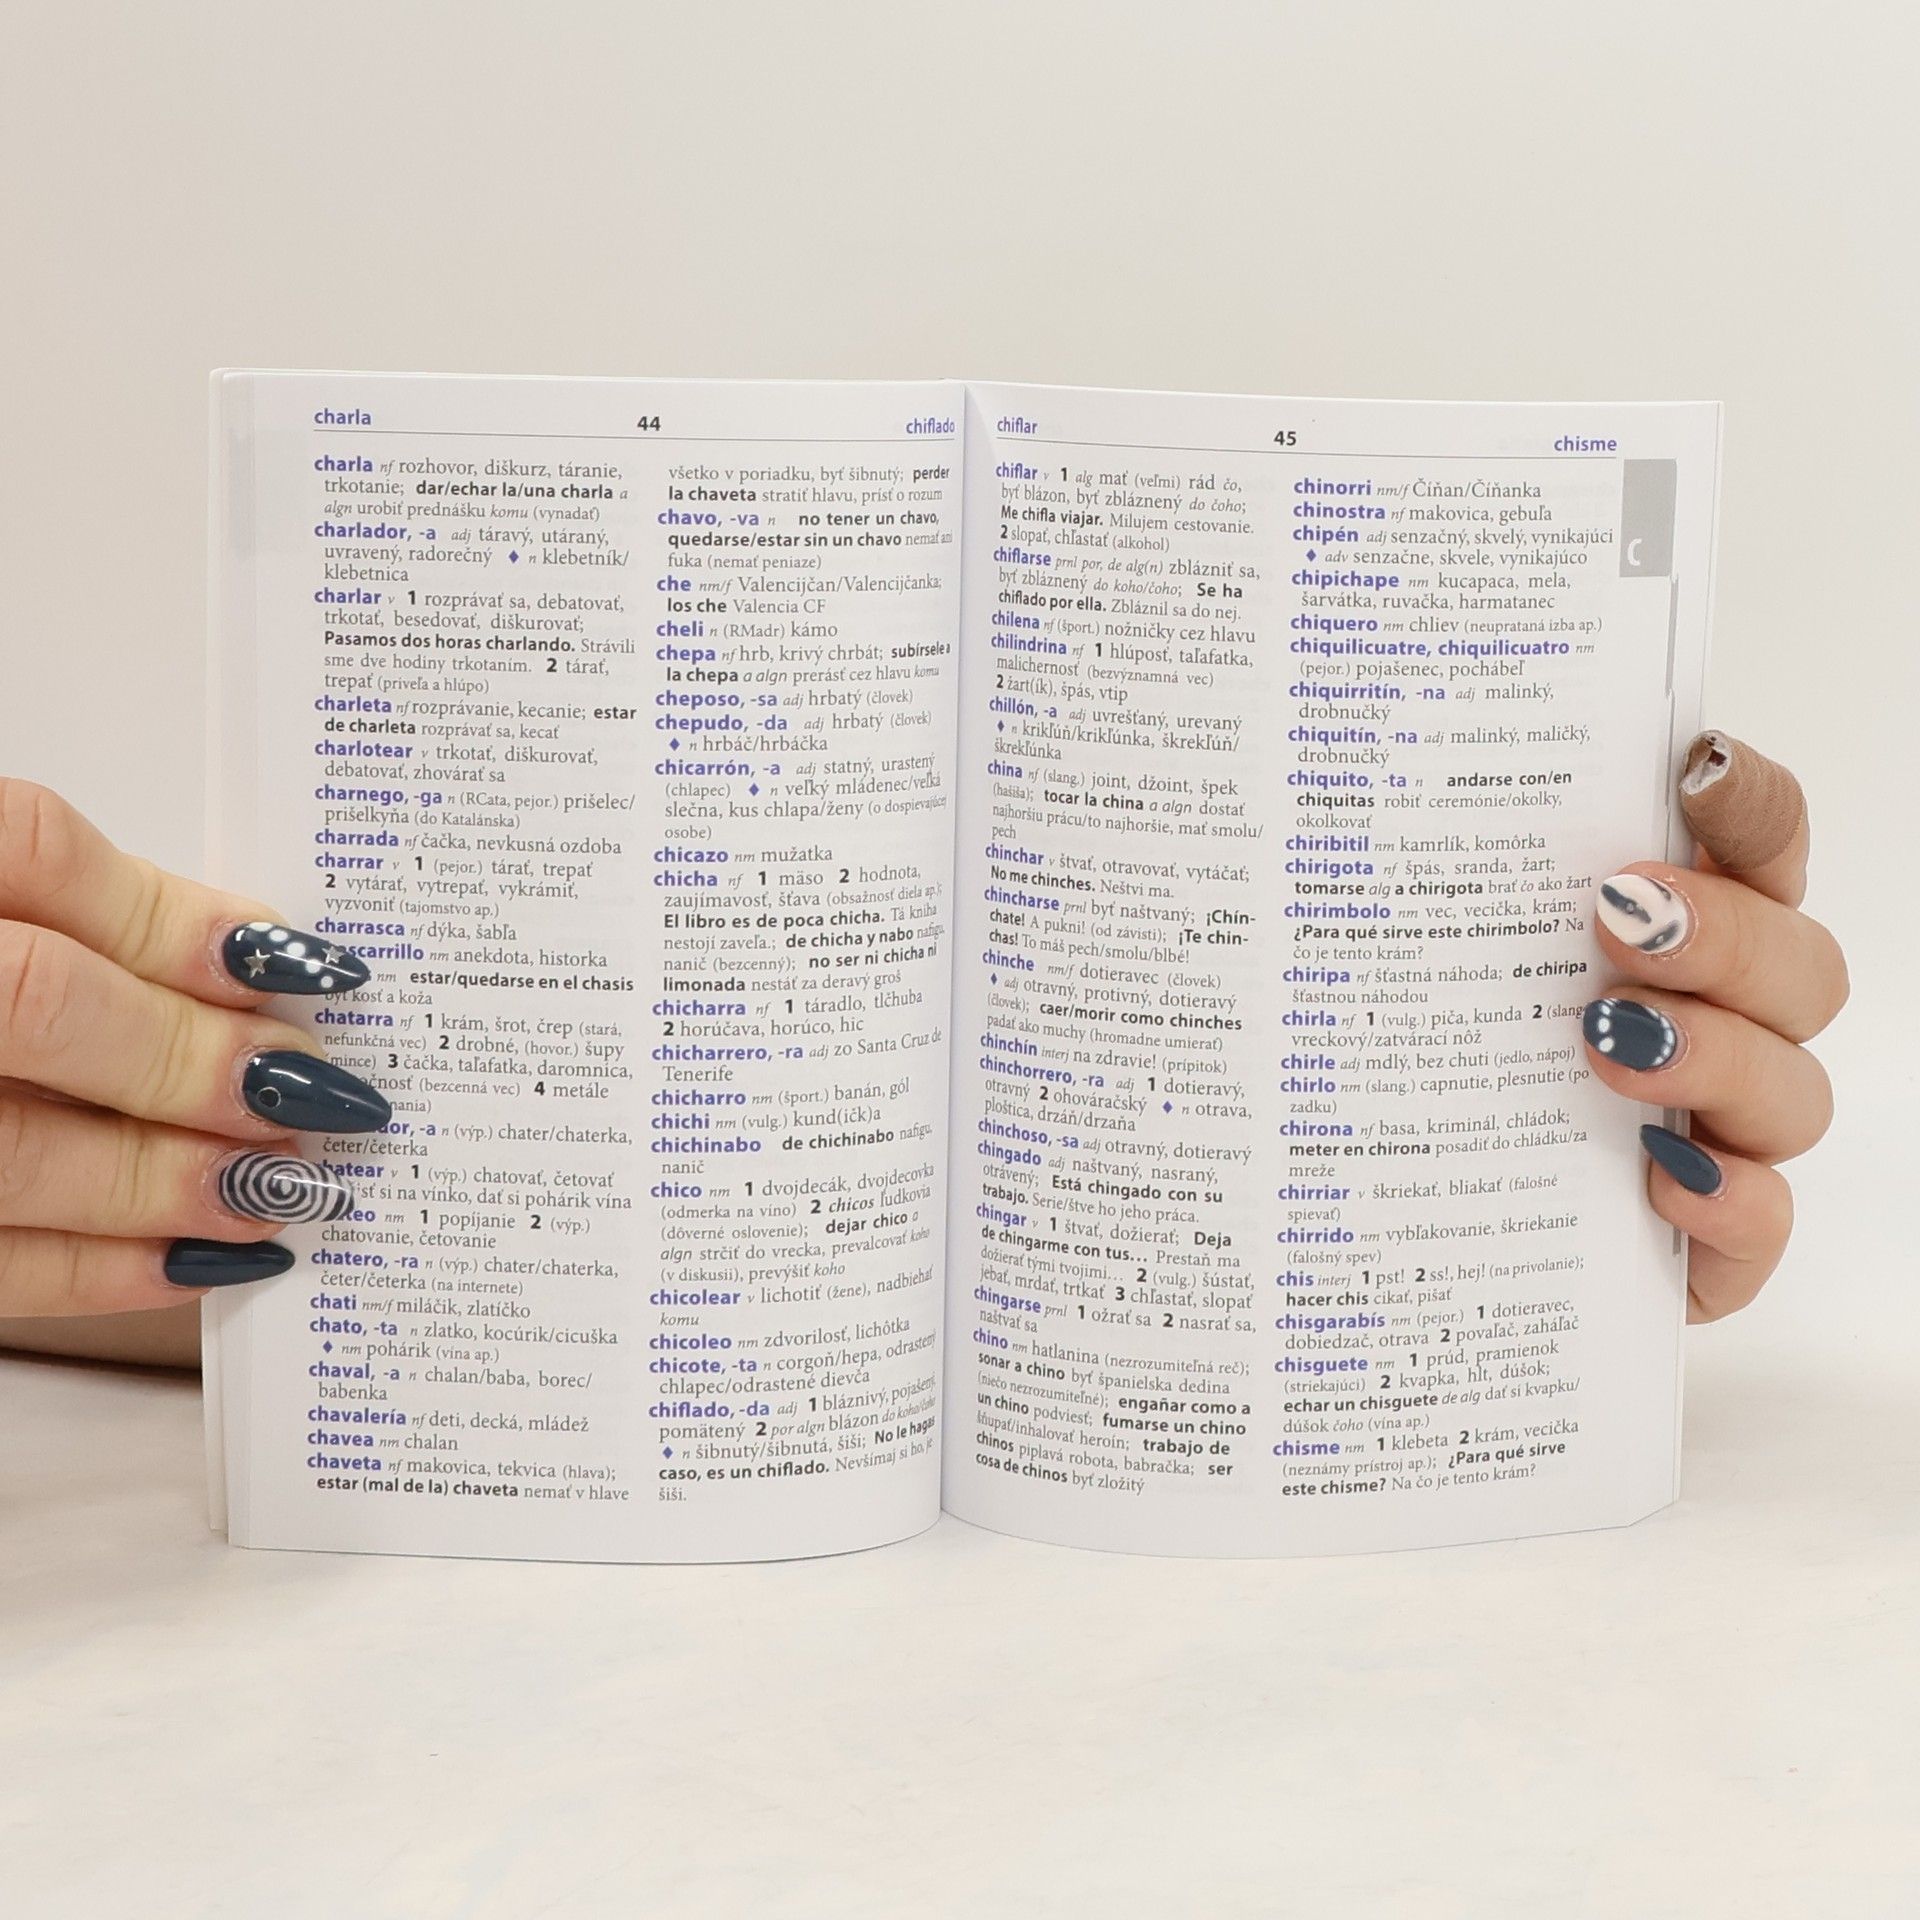 charla 44 chiflado
charla nf rozhovor, diškurz, táranie,
trkotanie; dar/echar la/una charla a
algn urobiť prednášku komu (vynadať)
charlador, -a adj táravý, utáraný,
uvravený, radorečný ♦ n klebetník/
klebetnica
charlar v 1 rozprávať sa, debatovať,
trkotať, besedovať, diškurovať;
Pasamos dos horas charlando. Strávili
sme dve hodiny trkotaním. 2 tárať,
trepať (priveľa a hlúpo)
charleta nf rozprávanie, kecanie; estar
de charleta rozprávať sa, kecať
charlotear v trkotať, diškurovať,
debatovať, zhovárať sa
charnego, -ga n (RCata, pejor.) prišelec/
prišelkyňa (do Katalánska)
charrada nf čačka, nevkusná ozdoba
charrar v 1 (pejor.) tárať, trepať
2 vytárať, vytrepať, vykrámiť,
vyzvoniť (tajomstvo ap.)
charrasca nf dýka, šabľa
scarrillo nm anekdota, historka
nm estar/quedarse en el chasis
byť kosť a koža
chatarra nf 1 krám, šrot, črep (stará,
nefunkčná vec) 2 drobné, (hovor.) šupy
(mince) 3 čačka, taľafatka, daromnica,
čnosť (bezcenná vec) 4 metále
dor, -a n (výp.) chater/chaterka,
četer/četerka
chatear v 1 (výp.) chatovať, četovať
ísť si na vínko, dať si pohárik vína
teo nm 1 popíjanie 2 (výp.)
chatovanie, četovanie
chatero, -ra n (výp.) chater/chaterka,
četer/četerka (na internete)
chati nm/f miláčik, zlatíčko
chato, -ta n zlatko, kocúrik/cicuška
♦ nm pohárik (vína ap.)
chaval, -a n chalan/baba, borec/
babenka
chavalería nf deti, decká, mládež
chavea nm chalan
chaveta nf makovica, tekvica (hlava);
estar (mal de la) chaveta nemať v hlave
všetko v poriadku, byť šibnutý; perder
la chaveta stratiť hlavu, prísť o rozum
chavo, -va n no tener un chavo,
quedarse/estar sin un chavo nemať ani
fuka (nemať peniaze)
che nm/f Valencijčan/Valencijčanka;
los che Valencia CF
cheli n (RMadr) kámo
chepa nf hrb, krivý chrbát; subírsele a
la chepa a algn prerásť cez hlavu komu
cheposo, -sa adj hrbatý (človek)
chepudo, -da adj hrbatý (človek)
♦ n hrbáč/hrbáčka
chicarrón, -a adj statný, urastený
(chlapec) ♦ n veľký mládenec/veľká
slečna, kus chlapa/ženy (o dospievajúcej
osobe)
chicazo nm mužatka
chicha nf 1 mäso 2 hodnota,
zaujímavosť, šťava (obsažnosť diela ap.);
El libro es de poca chicha. Tá kniha
nestojí zaveľa.; de chicha y nabo nafigu,
nanič (bezcenný); no ser ni chicha ni
limonada nestáť za deravý groš
chicharra nf 1 táradlo, tlčhuba
2 horúčava, horúco, hic
chicharrero, -ra adj zo Santa Cruz de
Tenerife
chicharro nm (šport.) banán, gól
chichi nm (vulg.) kund(ičk)a
chichinabo de chichinabo nafigu,
nanič
chico nm 1 dvojdecák, dvojdecovka
(odmerka na víno) 2 chicos ľudkovia
(dôverné oslovenie); dejar chico a
algn strčiť do vrecka, prevalcovať koho
(v diskusii), prevýšiť koho
chicolear v lichotiť (žene), nadbiehať
komu
chicoleo nm zdvorilosť, lichôtka
chicote, -ta n corgoň/hepa, odrastený
chlapec/odrastené dievča
chiflado, -da adj 1 bláznivý, pojašený,
pomätený 2 por algn blázon do koho/čoho
♦ n šibnutý/šibnutá, šiši; No le hagas
caso, es un chiflado. Nevšímaj si ho, je
šiši.
chiflar 45 chisme
chiflar v 1 alg mať (veľmi) rád čo,
byť blázon, byť zbláznený do čoho;
Me chifla viajar. Milujem cestovanie.
2 slopať, chľastať (alkohol)
chiflarse prnl por, de alg(n) zblázniť sa,
byť zbláznený do koho/čoho; Se ha
chiflado por ella. Zbláznil sa do nej.
chilena nf (šport.) nožničky cez hlavu
chilindrina nf 1 hlúposť, taľafatka,
malichernosť (bezvýznamná vec)
2 žart(ík), špás, vtip
chillón, -a adj uvrešťaný, urevaný
♦ n krikľúň/krikľúnka, škrekľúň/
škrekľúnka
china nf (slang.) joint, džoint, špek
(hašiša); tocar la china a algn dostať
najhoršiu prácu/to najhoršie, mať smolu/
pech
chinchar v štvať, otravovať, vytáčať;
No me chinches. Neštvi ma.
chincharse prnl byť naštvaný; ¡Chín-
chate! A pukni! (od závisti); ¡Te chin-
chas! To máš pech/smolu/blbé!
chinche nm/f dotieravec (človek)
♦ adj otravný, protivný, dotieravý
(človek); caer/morir como chinches
padať ako muchy (hromadne umierať)
chinchín interj na zdravie! (prípitok)
chinchorrero, -ra adj 1 dotieravý,
otravný 2 ohováračský ♦ n otrava,
ploštica, drzáň/drzaňa
chinchoso, -sa adj otravný, dotieravý
chingado adj naštvaný, nasraný,
otrávený; Está chingado con su
trabajo. Serie/štve ho jeho práca.
chingar v 1 štvať, dožierať; Deja
de chingarme con tus... Prestaň ma
dožierať tými tvojimi... 2 (vulg.) šústať,
jebať, mrdať, trtkať 3 chľastať, slopať
chingarse prnl 1 ožrať sa 2 nasrať sa,
naštvať sa
chino nm hatlanina (nezrozumiteľná reč);
sonar a chino byť španielska dedina
(niečo nezrozumiteľné); engañar como a
un chino podviesť; fumarse un chino
šňupať/inhalovať heroín; trabajo de
chinos piplavá robota, babračka; ser
cosa de chinos byť zložitý
chinorri nm/f Číňan/Číňanka
chinostra nf makovica, gebuľa
chipén adj senzačný, skvelý, vynikajúci
♦ adv senzačne, skvele, vynikajúco
chipichape nm kucapaca, mela,
šarvátka, ruvačka, harmatanec
chiquero nm chliev (neuprataná izba ap.)
chiquilicuatre, chiquilicuatro nm
(pejor.) pojašenec, pochábeľ
chiquirritín, -na adj malinký,
drobnučký
chiquitín, -na adj malinký, maličký,
drobnučký
chiquito, -ta n andarse con/en
chiquitas robiť ceremónie/okolky,
okolkovať
chiribitil nm kamrlík, komôrka
chirigota nf špás, sranda, žart;
tomarse alg a chirigota brať čo ako žart
chirimbolo nm vec, vecička, krám;
¿Para qué sirve este chirimbolo? Na
čo je tento krám?
chiripa nf šťastná náhoda; de chiripa
šťastnou náhodou
chirla nf 1 (vulg.) piča, kunda 2 (slang
vreckový/zatvárací nôž
chirle adj mdlý, bez chuti (jedlo, nápoj)
chirlo nm (slang.) capnutie, plesnutie (po
zadku)
chirona nf basa, kriminál, chládok;
meter en chirona posadiť do chládku/za
mreže
chirriar v škriekať, bliakať (falošné
spievať)
chirrido nm vybľakovanie, škriekanie
(falošný spev)
chis interj 1 pst! 2 ss!, hej! (na privolanie);
hacer chis cikať, pišať
chisgarabís nm (pejor.) 1 dotieravec,
dobiedzač, otrava 2 povaľač, zaháľač
chisguete nm 1 prúd, pramienok
(striekajúci) 2 kvapka, hlt, dúšok;
echar un chisguete de alg dať si kvapku/
dúšok čoho (vína ap.)
chisme nm 1 klebeta 2 krám, vecička
(neznámy prístroj ap.); ¿Para qué sirve
este chisme? Na čo je tento krám?
C